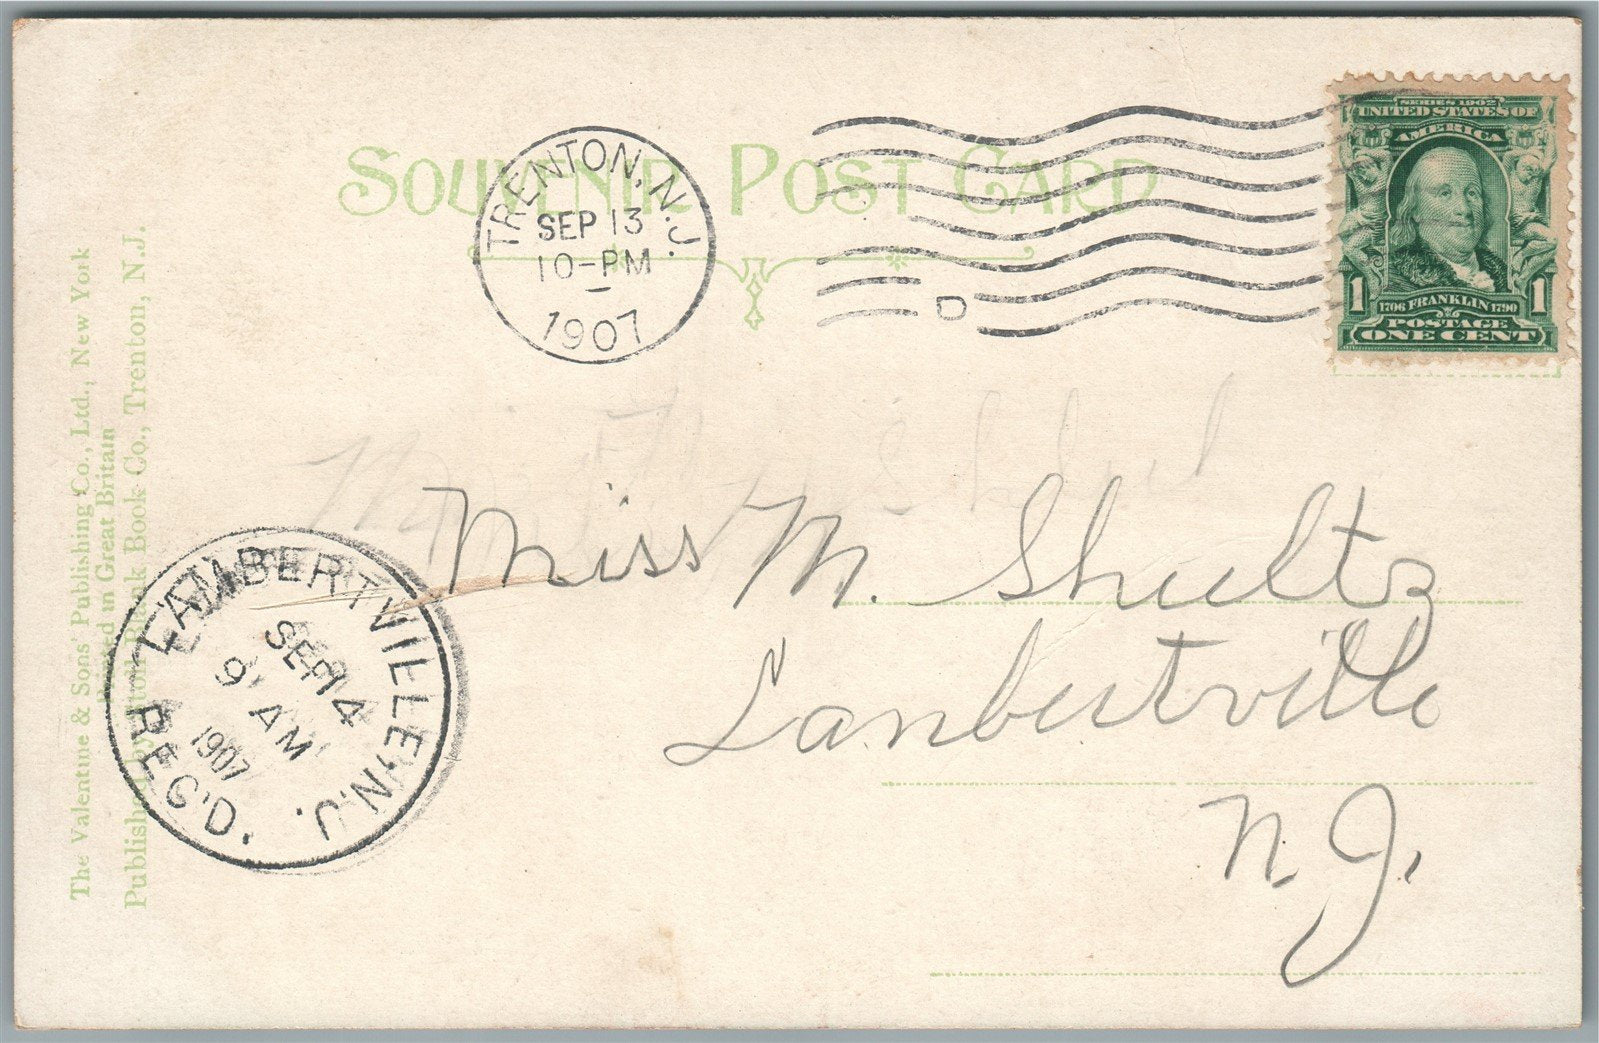 SOUVENIR POST CARD
TRENTON, N.J.
SEP 13
10-PM
1907
D
SERIES 1902
UNITED STATES OF
AMERICA
1 1706 FRANKLIN 1790 1
POSTAGE
ONE CENT
The Valentine & Sons' Publishing Co., Ltd., New York
Printed in Great Britain
Published by Stoll Blank Book Co., Trenton, N.J.
LAMBERTVILLE, N.J.
SEP 14
9 AM
1907
REC'D.
Miss M. Shultz
Lanbertville
N. J.